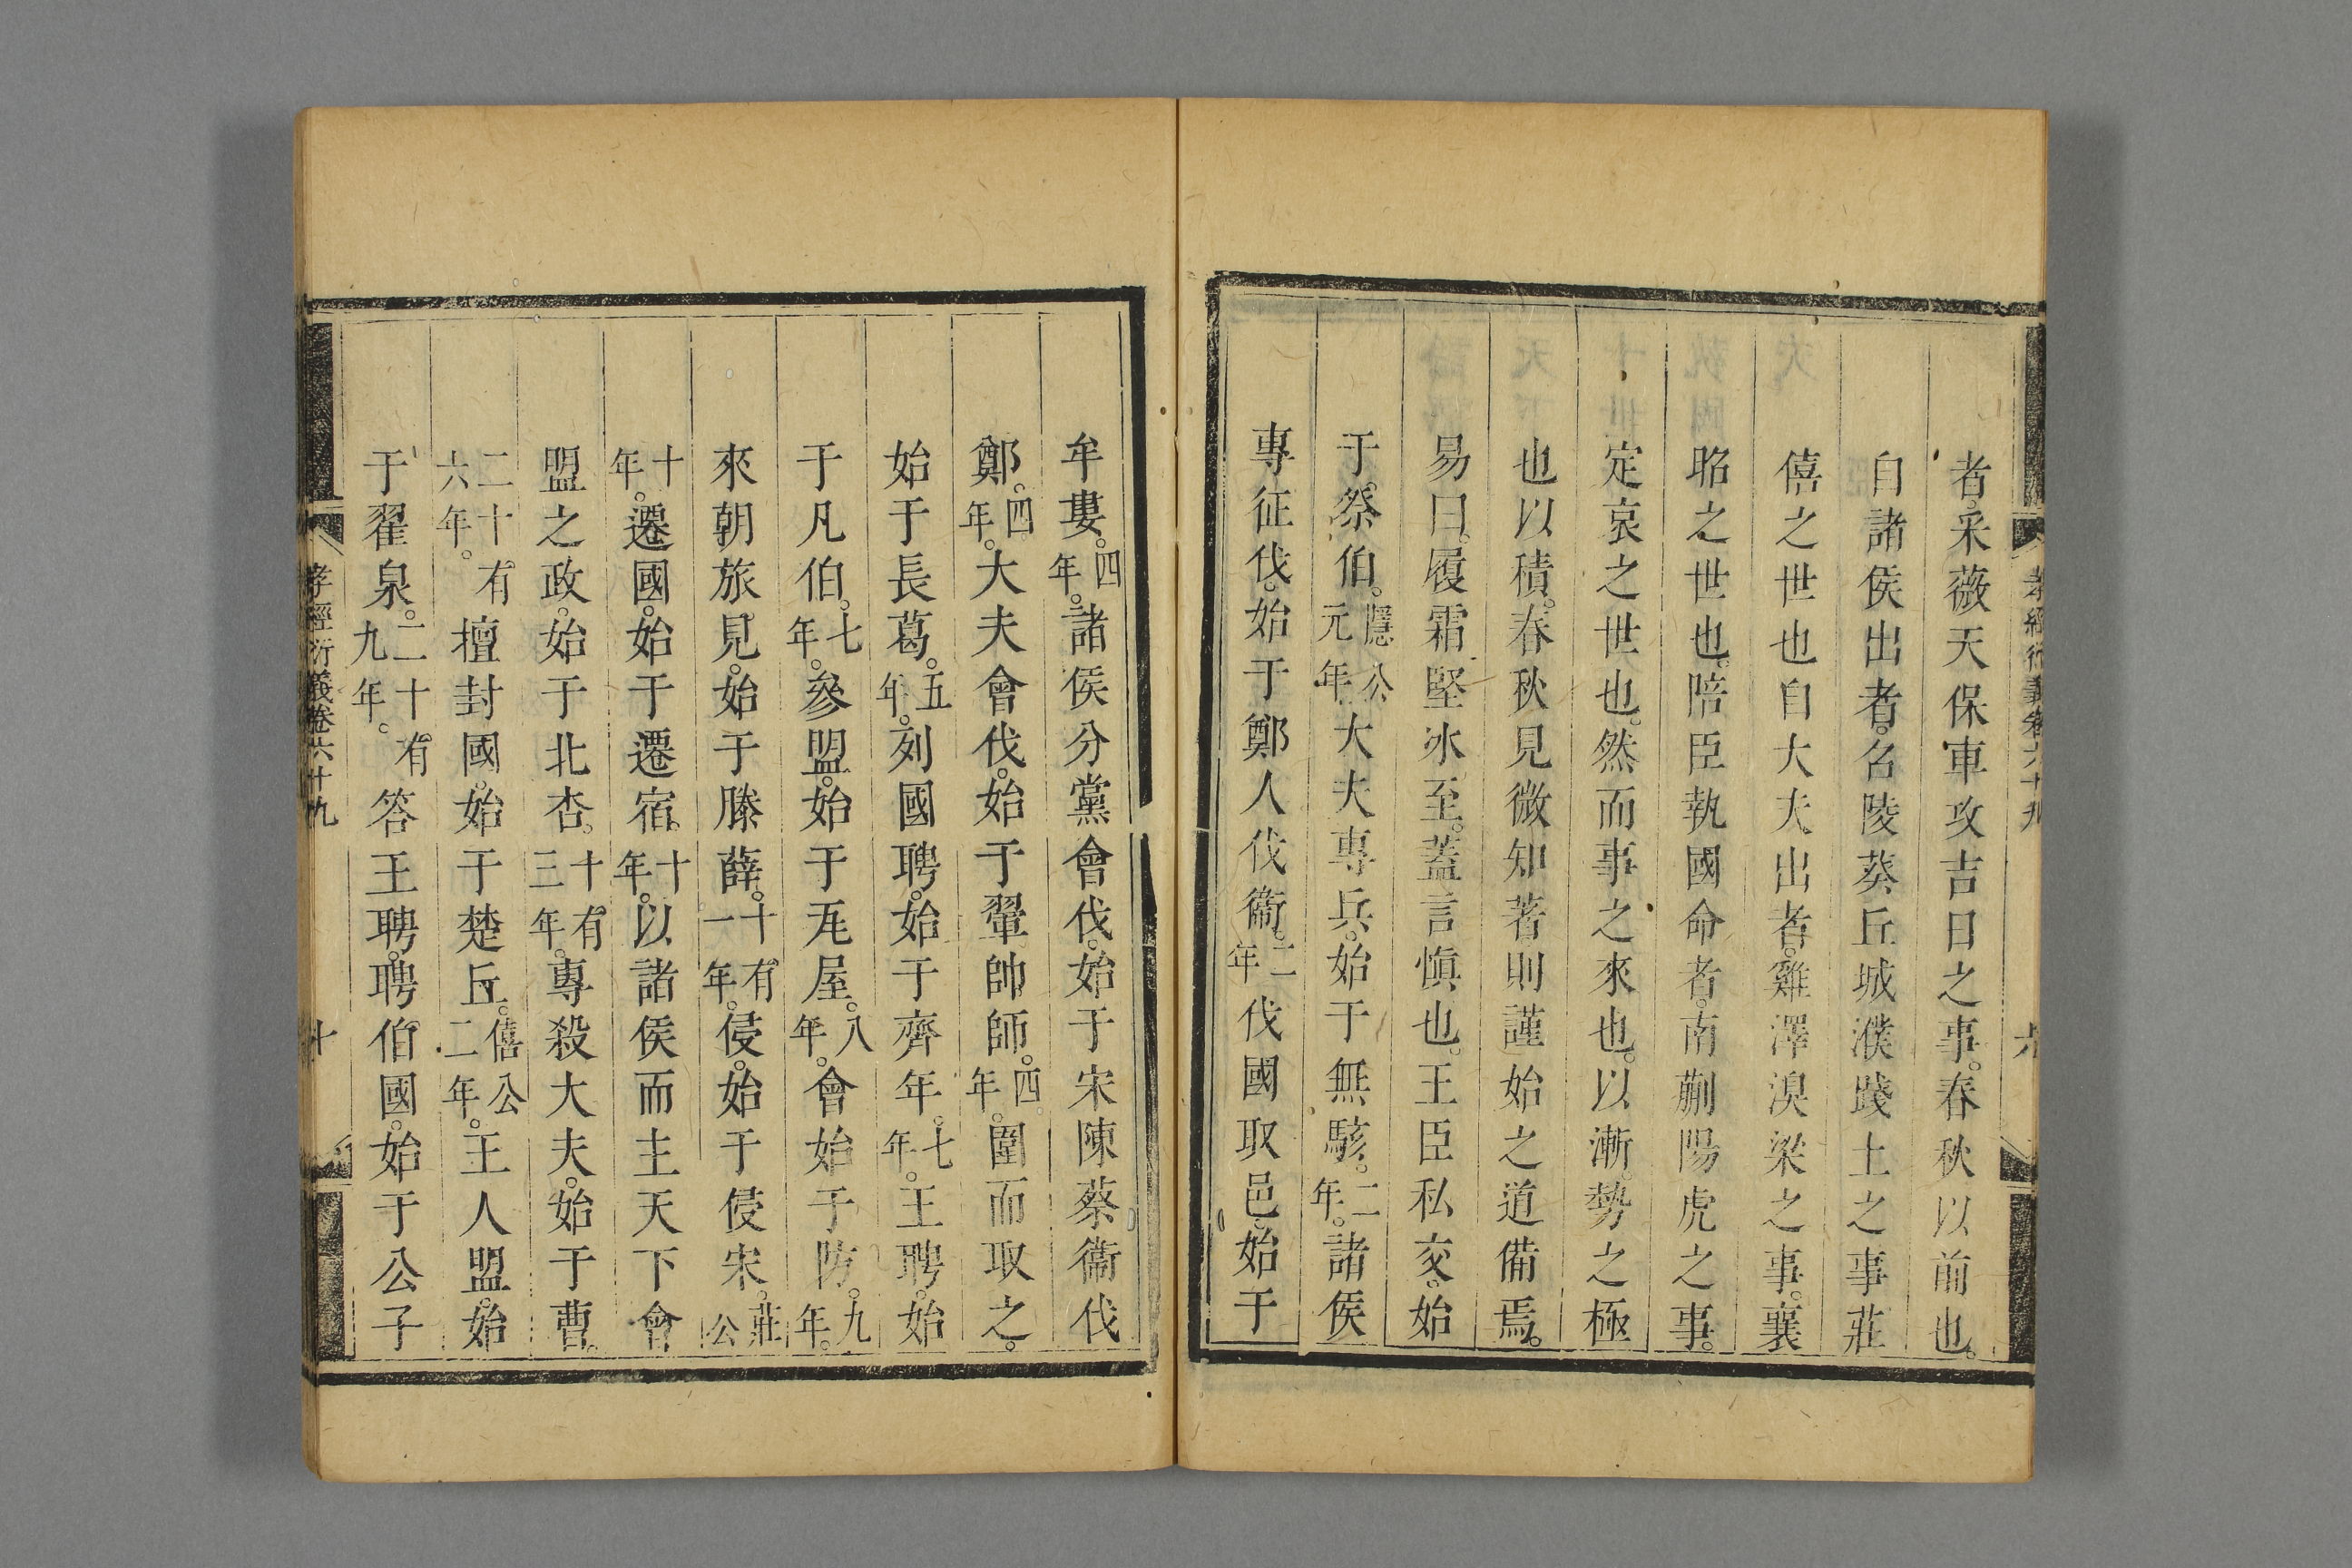 孝經衍義卷六十九
者。采薇天保車攻吉日之事。春秋以前也。
自諸侯出者。召陵葵丘城濮踐土之事莊
僖之世也自大夫出者。雞澤溴梁之事。襄
昭之世也。陪臣執國命者。南蒯陽虎之事。
定哀之世也。然而事之來也。以漸。勢之極
也以積。春秋見微知著則謹始之道備焉。
易曰。履霜堅冰至。蓋言慎也。王臣私交。始
于祭伯。隱公元年大夫專兵。始于無駭。二年。諸侯
專征伐。始于鄭人伐衞。二年伐國取邑。始于
牟婁。四年。諸侯分黨會伐。始于宋陳蔡衞伐
鄭。四年。大夫會伐。始于翬帥師。四年。圍而取之。
始于長葛。五年。列國聘。始于齊年。七年。王聘。始
于凡伯。七年。參盟。始于瓦屋。八年。會始于防。九年。
來朝旅見。始于滕薛。十有一年。侵。始于侵宋。莊公
十年。遷國。始于遷宿。十年。以諸侯而主天下會
盟之政。始于北杏。十有三年。專殺大夫。始于曹。
二十有六年。擅封國。始于楚丘。僖公二年。王人盟。始
于翟泉。二十有九年。答王聘。聘伯國。始于公子
孝經衍義卷六十九
十